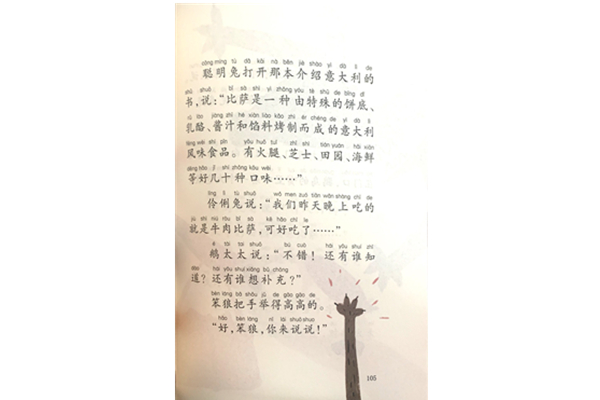 cōng míng tù dǎ kāi nà běn jiè shào yì dà lì de
聪明兔打开那本介绍意大利的
shū shuō bǐ sà shì yì zhǒng yóu tè shū de bǐng dǐ
书,说:“比萨是一种由特殊的饼底、
rǔ lào jiàng zhī hé xiàn liào kǎo zhì ér chéng de yì dà lì
乳酪、酱汁和馅料烤制而成的意大利
fēng wèi shí pǐn yǒu huǒ tuǐ zhī shì tián yuán hǎi xiān
风味食品。有火腿、芝士、田园、海鲜
děng hǎo jǐ shí zhǒng kǒu wèi
等好几十种口味……”
líng lì tù shuō wǒ men zuó tiān wǎn shang chī de
伶俐兔说:“我们昨天晚上吃的
jiù shì niú ròu bǐ sà kě hǎo chī le
就是牛肉比萨,可好吃了……”
é tài tai shuō bú cuò hái yǒu shuí zhī
鹅太太说:“不错!还有谁知
dào hái yǒu shuí xiǎng bǔ chōng
道?还有谁想补充?”
bèn láng bǎ shǒu jǔ de gāo gāo de
笨狼把手举得高高的。
hǎo bèn láng nǐ lái shuō shuo
“好,笨狼,你来说说!”
105